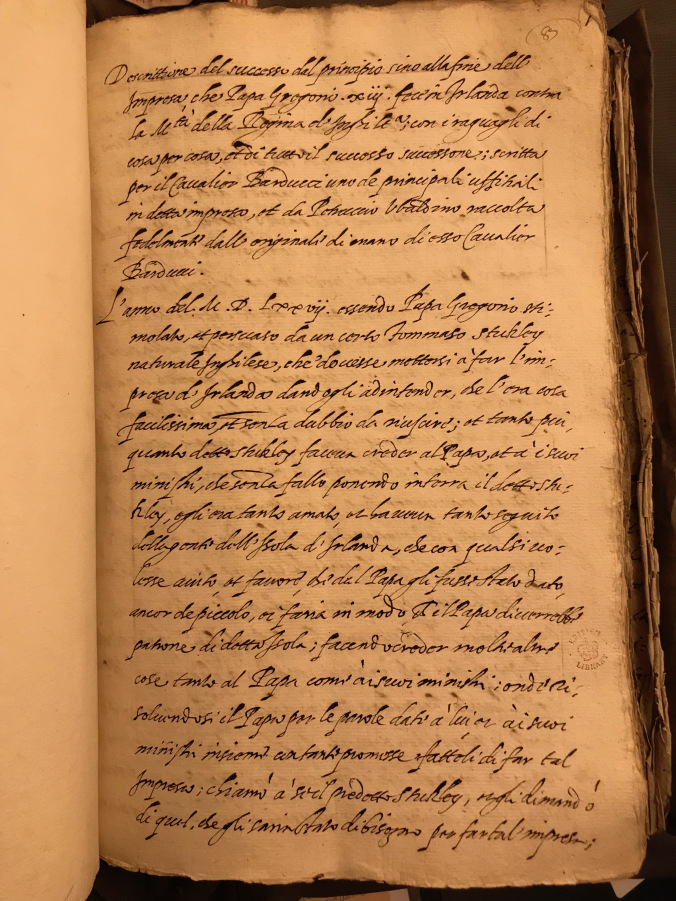 83
Descrittione del successo dal principio sino alla fine dell
Impresa, che Papa Gregorio xiij. fece in Irlanda contra
la M.tà della Regina d'Inghil.ra; con i raguagli di
cosa per cosa, et di tutto il successo successone; scritta
per il Cavalier Barducci uno de principali uffitiali
in detta impresa, et da Petruccio Ubaldino raccolta
fedelmente dall originale di mano di esso Cavalier
Barducci.
L'anno del. M. D. Lxxvij. essendo Papa Gregorio sti=
molato, et persuaso da un certo Tommaso Stukley
naturale Inghilese, che dovesse mettersi à far l'im=
presa d'Irlanda dandogli ad intender, che l'era cosa
facilissima, et senza dubbio da riuscire; et tanto piu,
quanto detto Stukley faceva creder al Papa, et a i suoi
ministri, che senza fallo ponendo in terra il detto Stu=
kley, egli era tanto amato, et haveva tanto seguito
dalla gente dell'Isola d'Irlanda, che con qualsivo=
lesse aiuto, et favore, che dal Papa gli fusse stato dato,
ancor che piccolo, ei faria in modo, che il Papa diverrebbe
patrone di detta Isola; facendo creder molte altre
cose tanto al Papa come à i suoi ministri; onde ri=
solvendosi il Papa per le parole date à lui et à i suoi
ministri insieme con tante promesse fatteli di far tal
Impresa; chiamò à sè il predetto Stukley, et gli dimandò
di quel, che gli saria stato di bisogno per far tal impresa;
BRITISH
LIBRARY